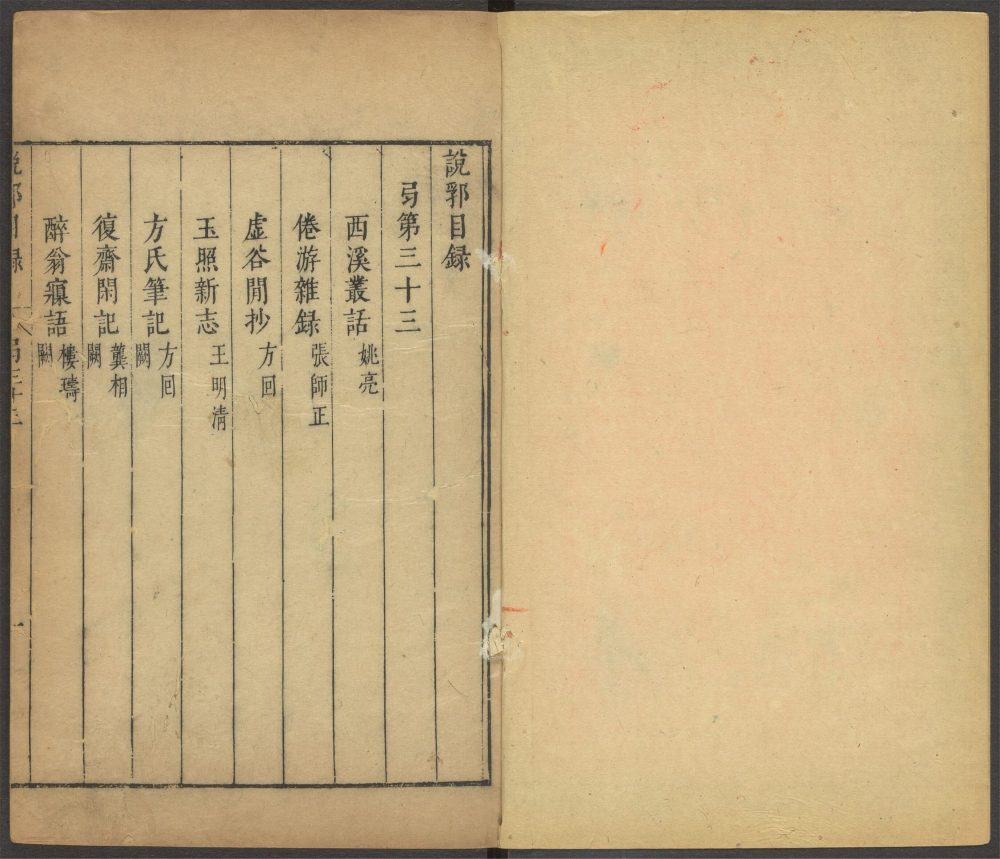 說郛目録
弓第三十三
西溪叢話 姚亮
倦游雜録 張師正
虛谷閒抄 方回
玉照新志 王明清
方氏筆記 方回 闕
復齋閑記 龔相 闕
醉翁寱語 樓璹 闕
說郛目録 弓三十三 一